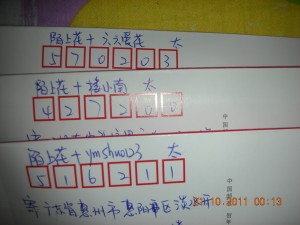 陌上花+六六爱花 大
570203
陌上花+禧小南 大
427200
陌上花+ymshuo123 大
516211
广东省惠州市惠阳区淡水
中国
中国邮政
23/10/2011 00:13